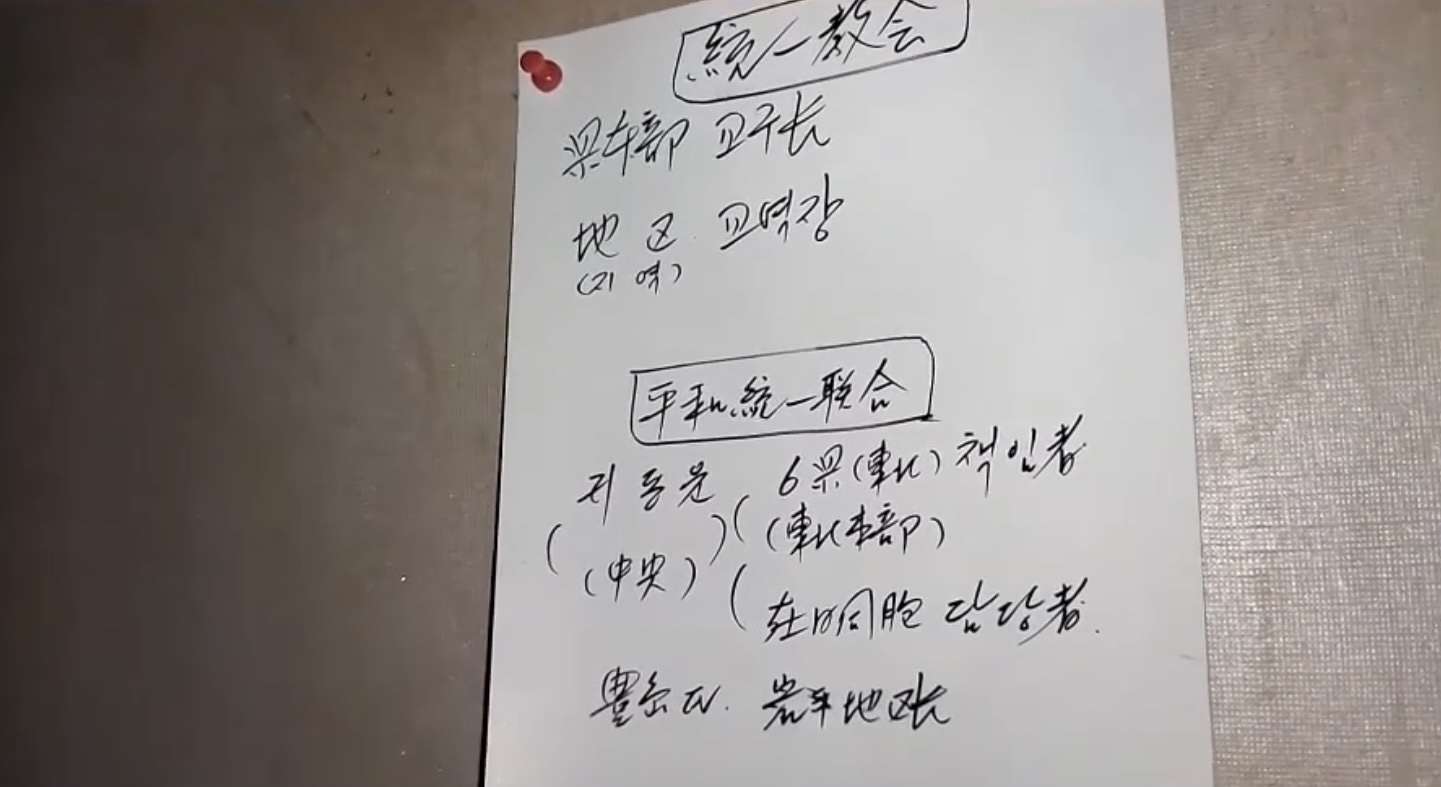 統一教会
県本部 교구长
地区 교역장
(지역)
平和統一联合
동문 6県(東北) 책임者
(中央) (東北本部)
在日同胞 담당者.
岩手地区长